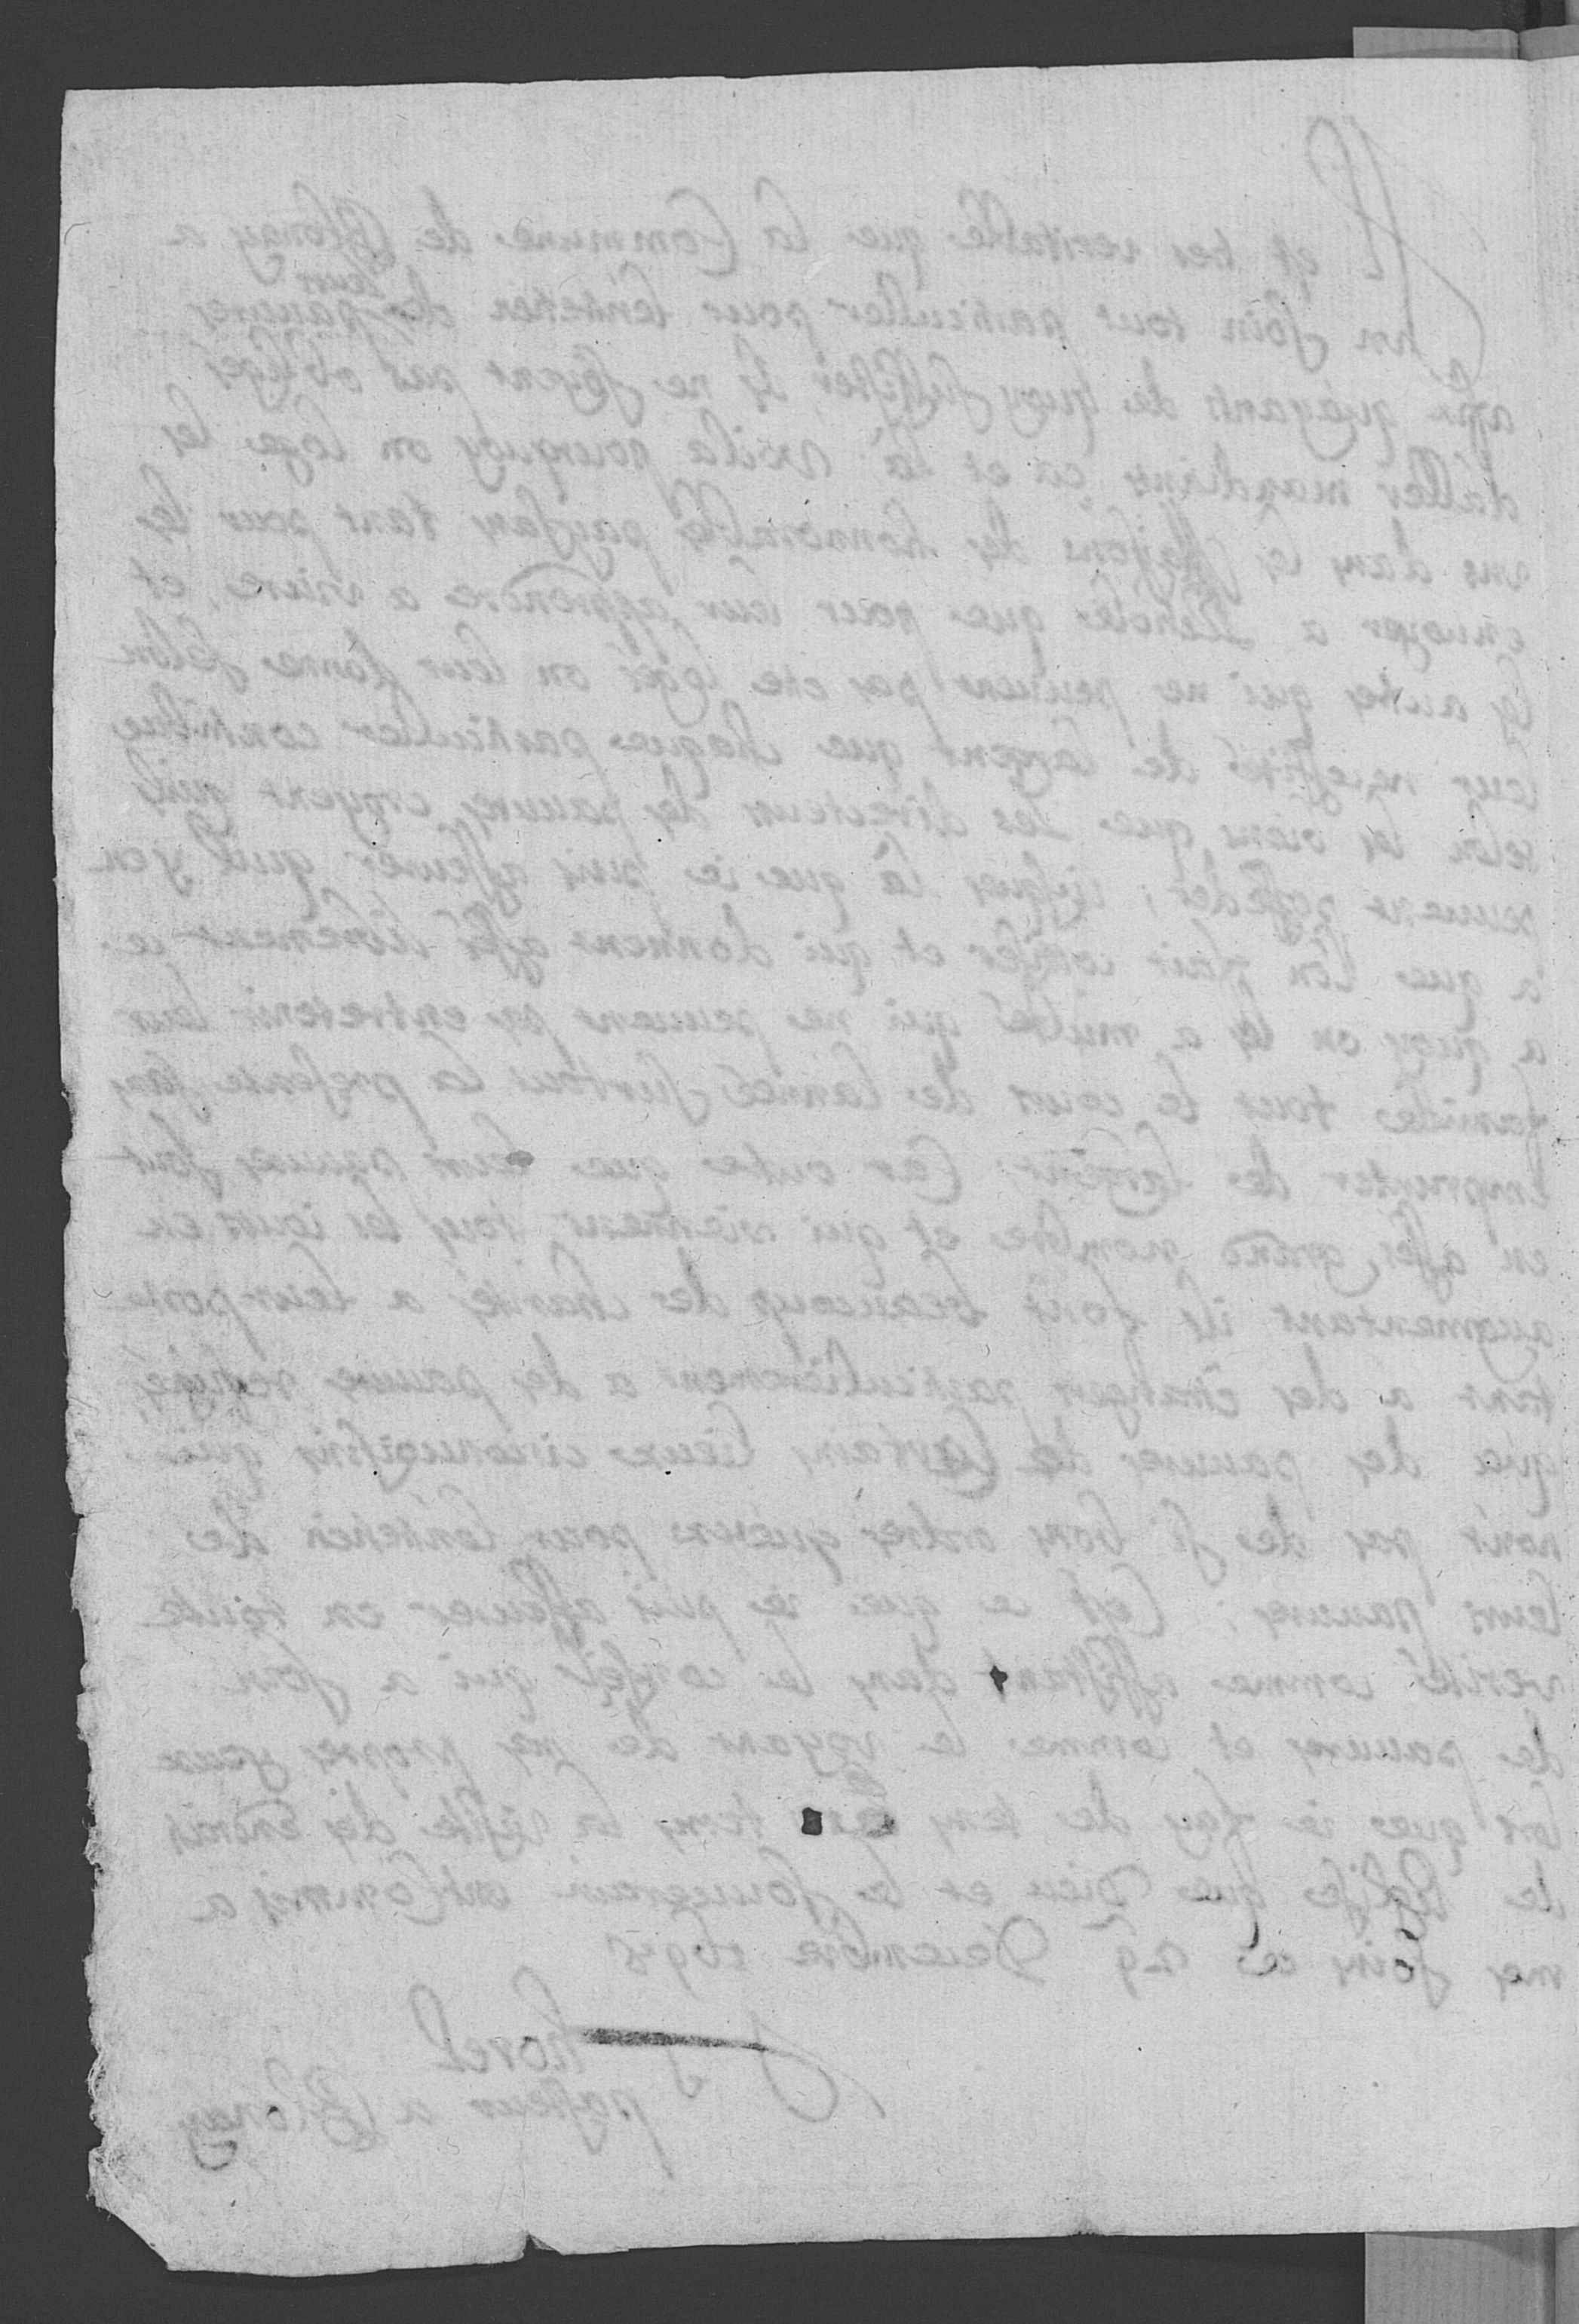 Il est tres veritable que la Commune de Blonay a
un soin tout particulier pour lentretien de leurs pauures
affin quayants de quoy subsister, ils ne soyent pas obligés
daller mandians ça et là voila pourquoy on loge les
uns dans les Maisons des honnorables paysans tant pour les
enuoyer a leschole que pour leur apprendre a viure, et
les autres qui ne peuuent pas etre logés on leur donne selon
leur necessité de largent que chaque particulier contribue
selon les biens que les directeurs des pauures croyent quils
peuuent posseder; iusques là que ie puis asseurer quil yen
a que lon fait cottiser et qui donnent assés librement ce
a quoy on les a mis qui ne peuuent pas entretenir leur
famille tout le cours de lannée surtout la presente sans
emprunter de largent; Car outre que leurs pauures sont
en assés grand nombre et qui viennent tous les iours en
augmentant ils font beaucoup de charité a leur porte
tant a des etrangers particulierement a des pauures refugiés,
qua des pauures de Certains lieux circonuoisins qui
nont pas de si bons ordres queux pour lentretien de
leurs pauures; Cest ce que ie puis asseurer en toute
verité comme assistant dans le conseil qui a soin
de pauures et comme le voyant de mes propres yeux
lors que ie fay de tems en tems la visite des endrois
de leglise que Dieu et le souuerain ont Commis a
mes soins ce 29 Decembre 1698
pasteur a Blonay